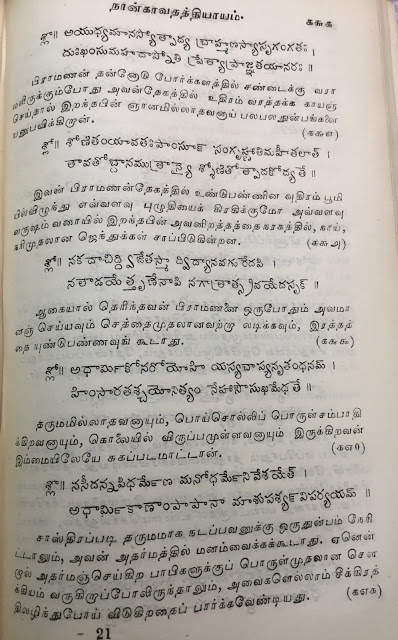 நான்காவதத்தியாயம். ௧௬௧
శ్లో॥ అయుధ్యమానస్యోత్పాద్య బ్రాహ్మణస్యాసృగంగతః ।
దుఃఖంసుమహదాప్నోతి ప్రేత్యాప్రాజ్ఞతయానరః ॥
பிராமணன் தன்னோடு போர்க்களத்தில் சண்டைக்கு வரா
மலிருக்கும்போது அவன்தேகத்தில் உதிரம் வரத்தக்க காயஞ்
செய்தால் இறந்தபின் ஞானமில்லாதவனாய் பலபலதுன்பங்களை
யனுபவிக்கிறான். (௧௬௭)
శ్లో॥ శోణితంయావతఃపాంసూన్ సంగృహ్ణాతిమహీతలాత్ ।
తావతోబ్దానముత్రాన్యై శ్శోణితోత్పాదకోద్యతే ॥
இவன் பிராமணன்தேகத்தில் உண்டுபண்ணின வுதிரம் பூமி
யில்விழுந்து எவ்வளவு புழுதியைக் கிரகிக்குமோ அவ்வளவு
வருஷம் வரையில் இறந்தபின் அவனிறத்தத்தை நரகத்தில், நாய்,
நரிமுதலான ஜெந்துக்கள் சாப்பிடுகின்றன. (௧௬௮)
శ్లో॥ నకదాచిద్ద్విజేతస్మా ద్విద్వానవగురేదపి ।
నతాడయేత్తృణేనాపి నగాత్రాత్స్రావయేదసృక్ ॥
ஆகையால் தெரிந்தவன் பிராமணனை ஒருபோதும் அவமா
னஞ் செய்யவும் செத்தைமுதலானவற்று லடிக்கவும், இரத்தத்
தை யுண்டுபண்ணவுங் கூடாது. (௧௬௯)
శ్లో॥ అధార్మికోనరోయోహి యస్యచాప్యనృతంధనమ్ ।
హింసారతశ్చయోనిత్యం నేహాసౌసుఖమేధతే ॥
தருமமில்லாதவனும், பொய்சொல்லிப் பொருள்சம்பாதி
க்கிறவனும், கொலையில் விருப்பமுள்ளவனும் இருக்கிறவன்
இம்மையிலேயே சுகப்படமாட்டான். (௧௭௦)
శ్లో॥ నసీదన్నపిధర్మేణ మనోధర్మేనివేశయేత్ ।
అధార్మికాణాంపాపానా మాశుపశ్యన్విపర్యయమ్ ॥
சாஸ்திரப்படி தருமமாக நடப்பவனுக்கு ஒருதுன்பம் நேரி
ட்டாலும், அவன் அதர்மத்தில் மனம்வைக்கக்கூடாது. ஏனென்
றால் அதர்மஞ்செய்கிற பாபிகளுக்குப் பொருள்முதலான சௌ
க்கியம் வருகிறாப்போலிருந்தாலும், அவைகளெல்லாம் சீக்கிரத்
திலழிந்துபோய் விடுகிறதைப் பார்க்கவேண்டியது. (௧௭௧)
21